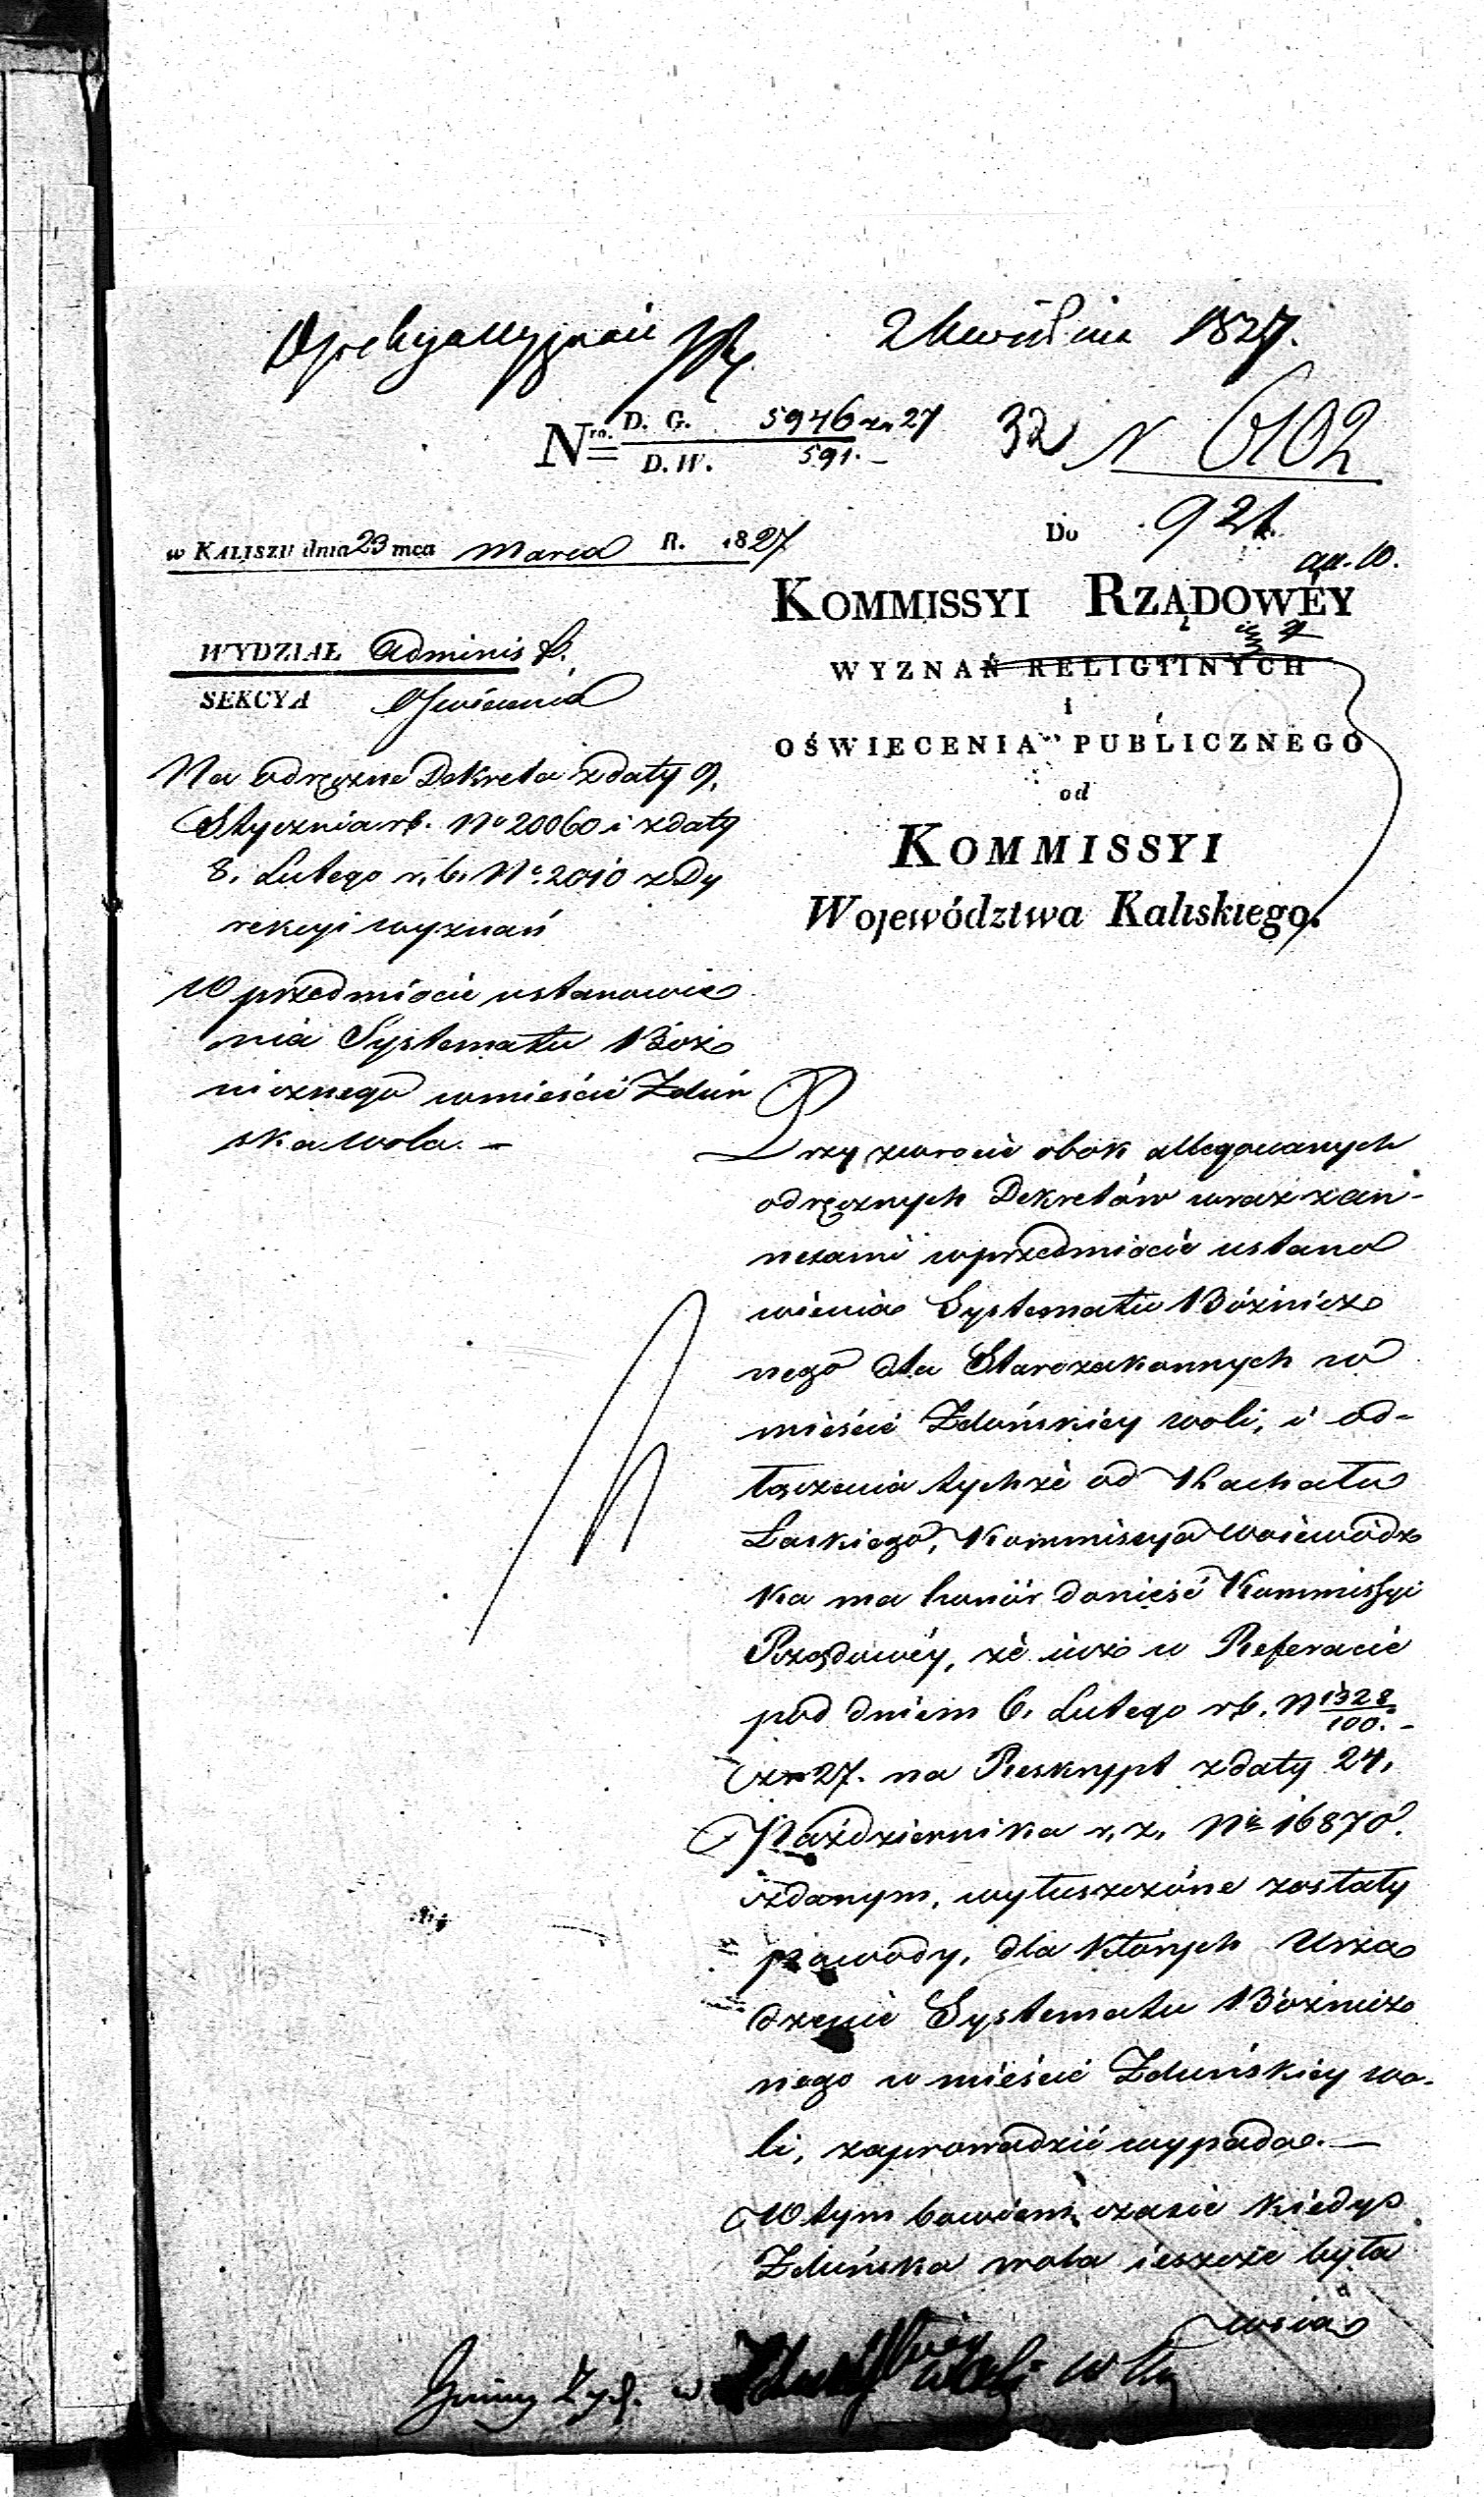 2 Kwietnia 1827.
Nro. D. G. 5946 zr. 27
D. W. 591. –
32 N 6102
921.
w KALISZU dnia 23 mca Marca R. 1827
Do
KOMMISSYI RZĄDOWÉY
WYZNAŃ RELIGIINYCH
i
OŚWIECENIA PUBLICZNEGO
od
KOMMISSYI
Województwa Kaliskiego.
WYDZIAŁ Adminis tr.
SEKCYA Oświecenia
Na odręczne Dekreta z daty 9.
Stycznia rb. No 20060 i z daty
8. Lutego r. b. No. 2010 z Dy
rekcyi wyznań
W przedmiocie ustanowie
nia Systematu Boż
nicznego w mieście Zduń
ska wola. –
Przy zwrocie obok allegowanych
odręcznych Dekretów wraz z an-
nexami w przedmiocie ustano
wienia Systematu Bóżnicz
nego dla Starozakonnych w
mieście Zduńskiey woli, i od-
łączenia tychże od Kachału
Łaskiego, Kommissya Woiewódz
ka ma honór donieść Kommissyi
Rządowéy, że iuż w Referacie
pod dniem 6. Lutego rb. N 1328/100. –
zr 27. na Reskrypt z daty 24.
Października r. z. Nro 16870.
zdanym, wyłuszczóne zostały
powody, dla których Urzą
dzenie Systematu Bóżnicz
nego w mieście Zduńskiey wo-
li, zaprowadzić wypada. —
W tym bowiem czasie kiedy
Zduńska wola ieszcze była
wsią
Gminy Żyd. w